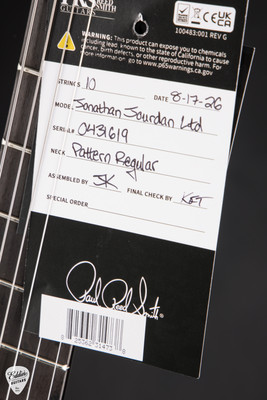 PRS REED SMITH
GUITARS
CE UK CA
100483:001 REV G
WARNING: This product can expose you to chemicals
including lead, known to the state of California to cause
cancer, birth defects, or other reproductive harm. For
more information go to www.p65warnings.ca.gov
STRINGS 10
DATE 8-17-26
MODEL Jonathan Jourdan Ltd
SERIAL# 0431619
NECK Pattern Regular
ASSEMBLED BY JK
FINAL CHECK BY
SPECIAL ORDER
Paul Reed Smith
Eddie's